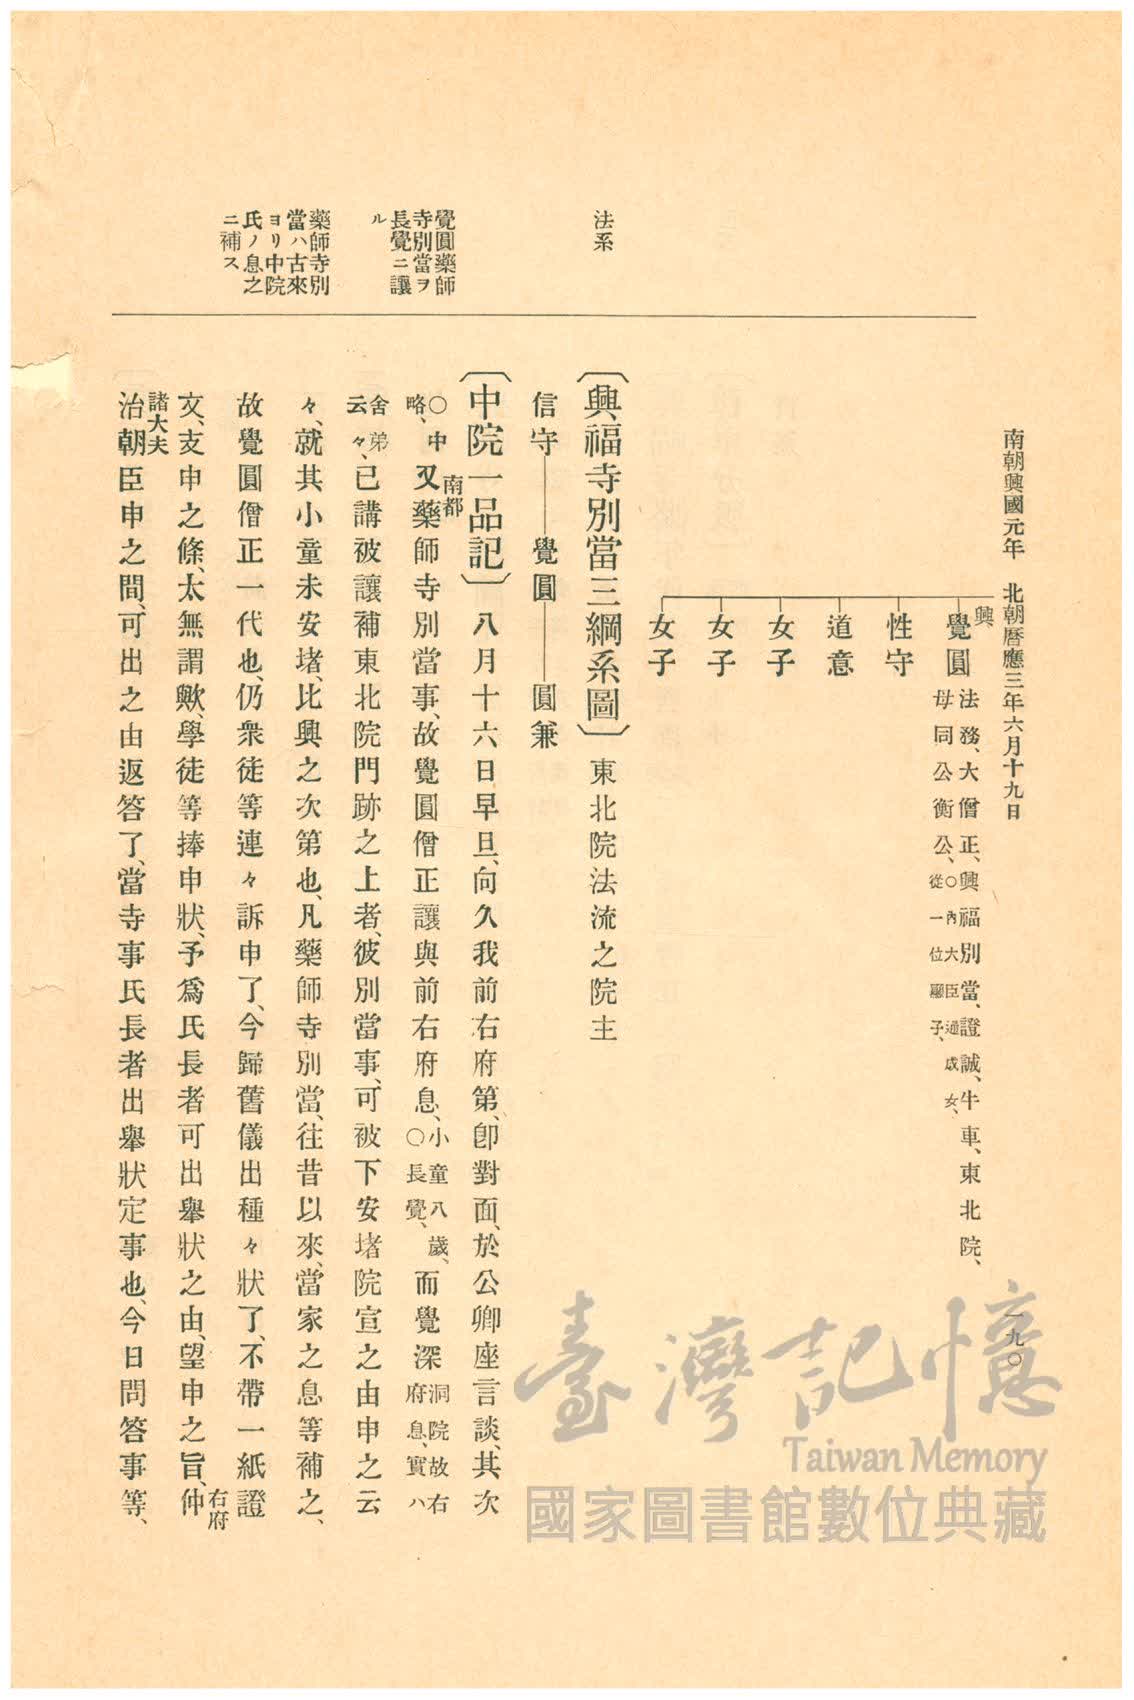 南朝興國元年 北朝曆應三年六月十九日
一九〇
興、
覺圓 法務、大僧正、興福別當、證誠、牛車、東北院、
母同公衡公、〇內大臣通成女、
從一位顯子、
性守
道意
女子
女子
女子
法系
〔興福寺別當三綱系圖〕 東北院法流之院主
信守―――覺圓―――圓兼
〔中院一品記〕 八月十六日早旦、向久我前右府第、卽對面、於公卿座言談、其次
覺圓藥師
寺別當ヲ
長覺ニ讓
ル
〇中
略、又藥師寺別當事、故覺圓僧正讓與前右府息、小童八歲、
〇長覺、而覺深洞院故右
府息、實ハ
南都
舍弟
云々、已講被讓補東北院門跡之上者、彼別當事、可被下安堵院宣之由申之云
々、就其小童未安堵、比興之次第也、凡藥師寺別當、往昔以來、當家之息等補之、
藥師寺別
當ハ古來
ヨリ中院
氏ノ息之
ニ補ス
故覺圓僧正一代也、仍衆徒等連々訴申了、今歸舊儀出種々狀了、不帶一紙證
文、支申之條、太無謂歟、學徒等捧申狀、予爲氏長者可出擧狀之由、望申之旨、仲
右府
諸大夫
治朝臣申之間、可出之由返答了、當寺事氏長者出擧狀定事也、今日問答事等、
臺灣記憶
Taiwan Memory
國家圖書館數位典藏